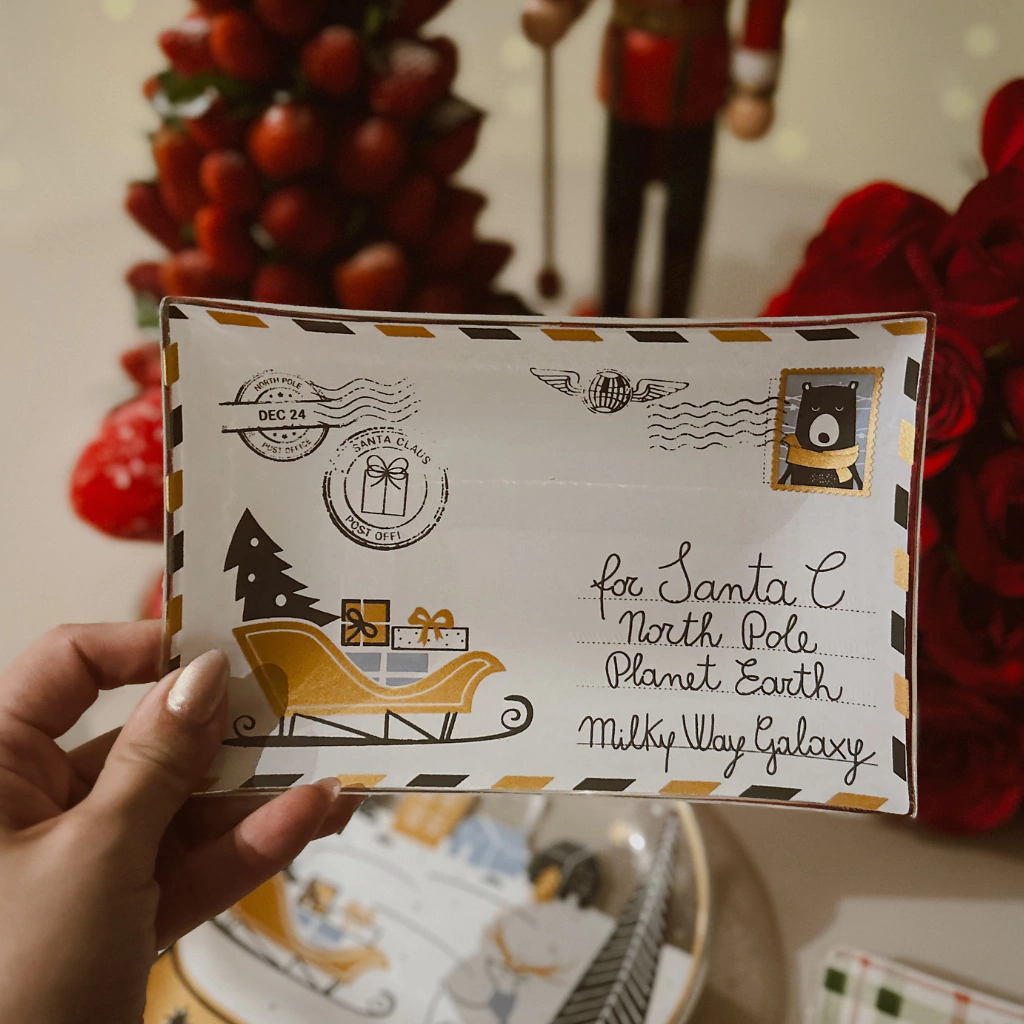 NORTH POLE
DEC 24
POST OFFICE
SANTA CLAUS
POST OFFI
for Santa C
North Pole
Planet Earth
Milky Way Galaxy